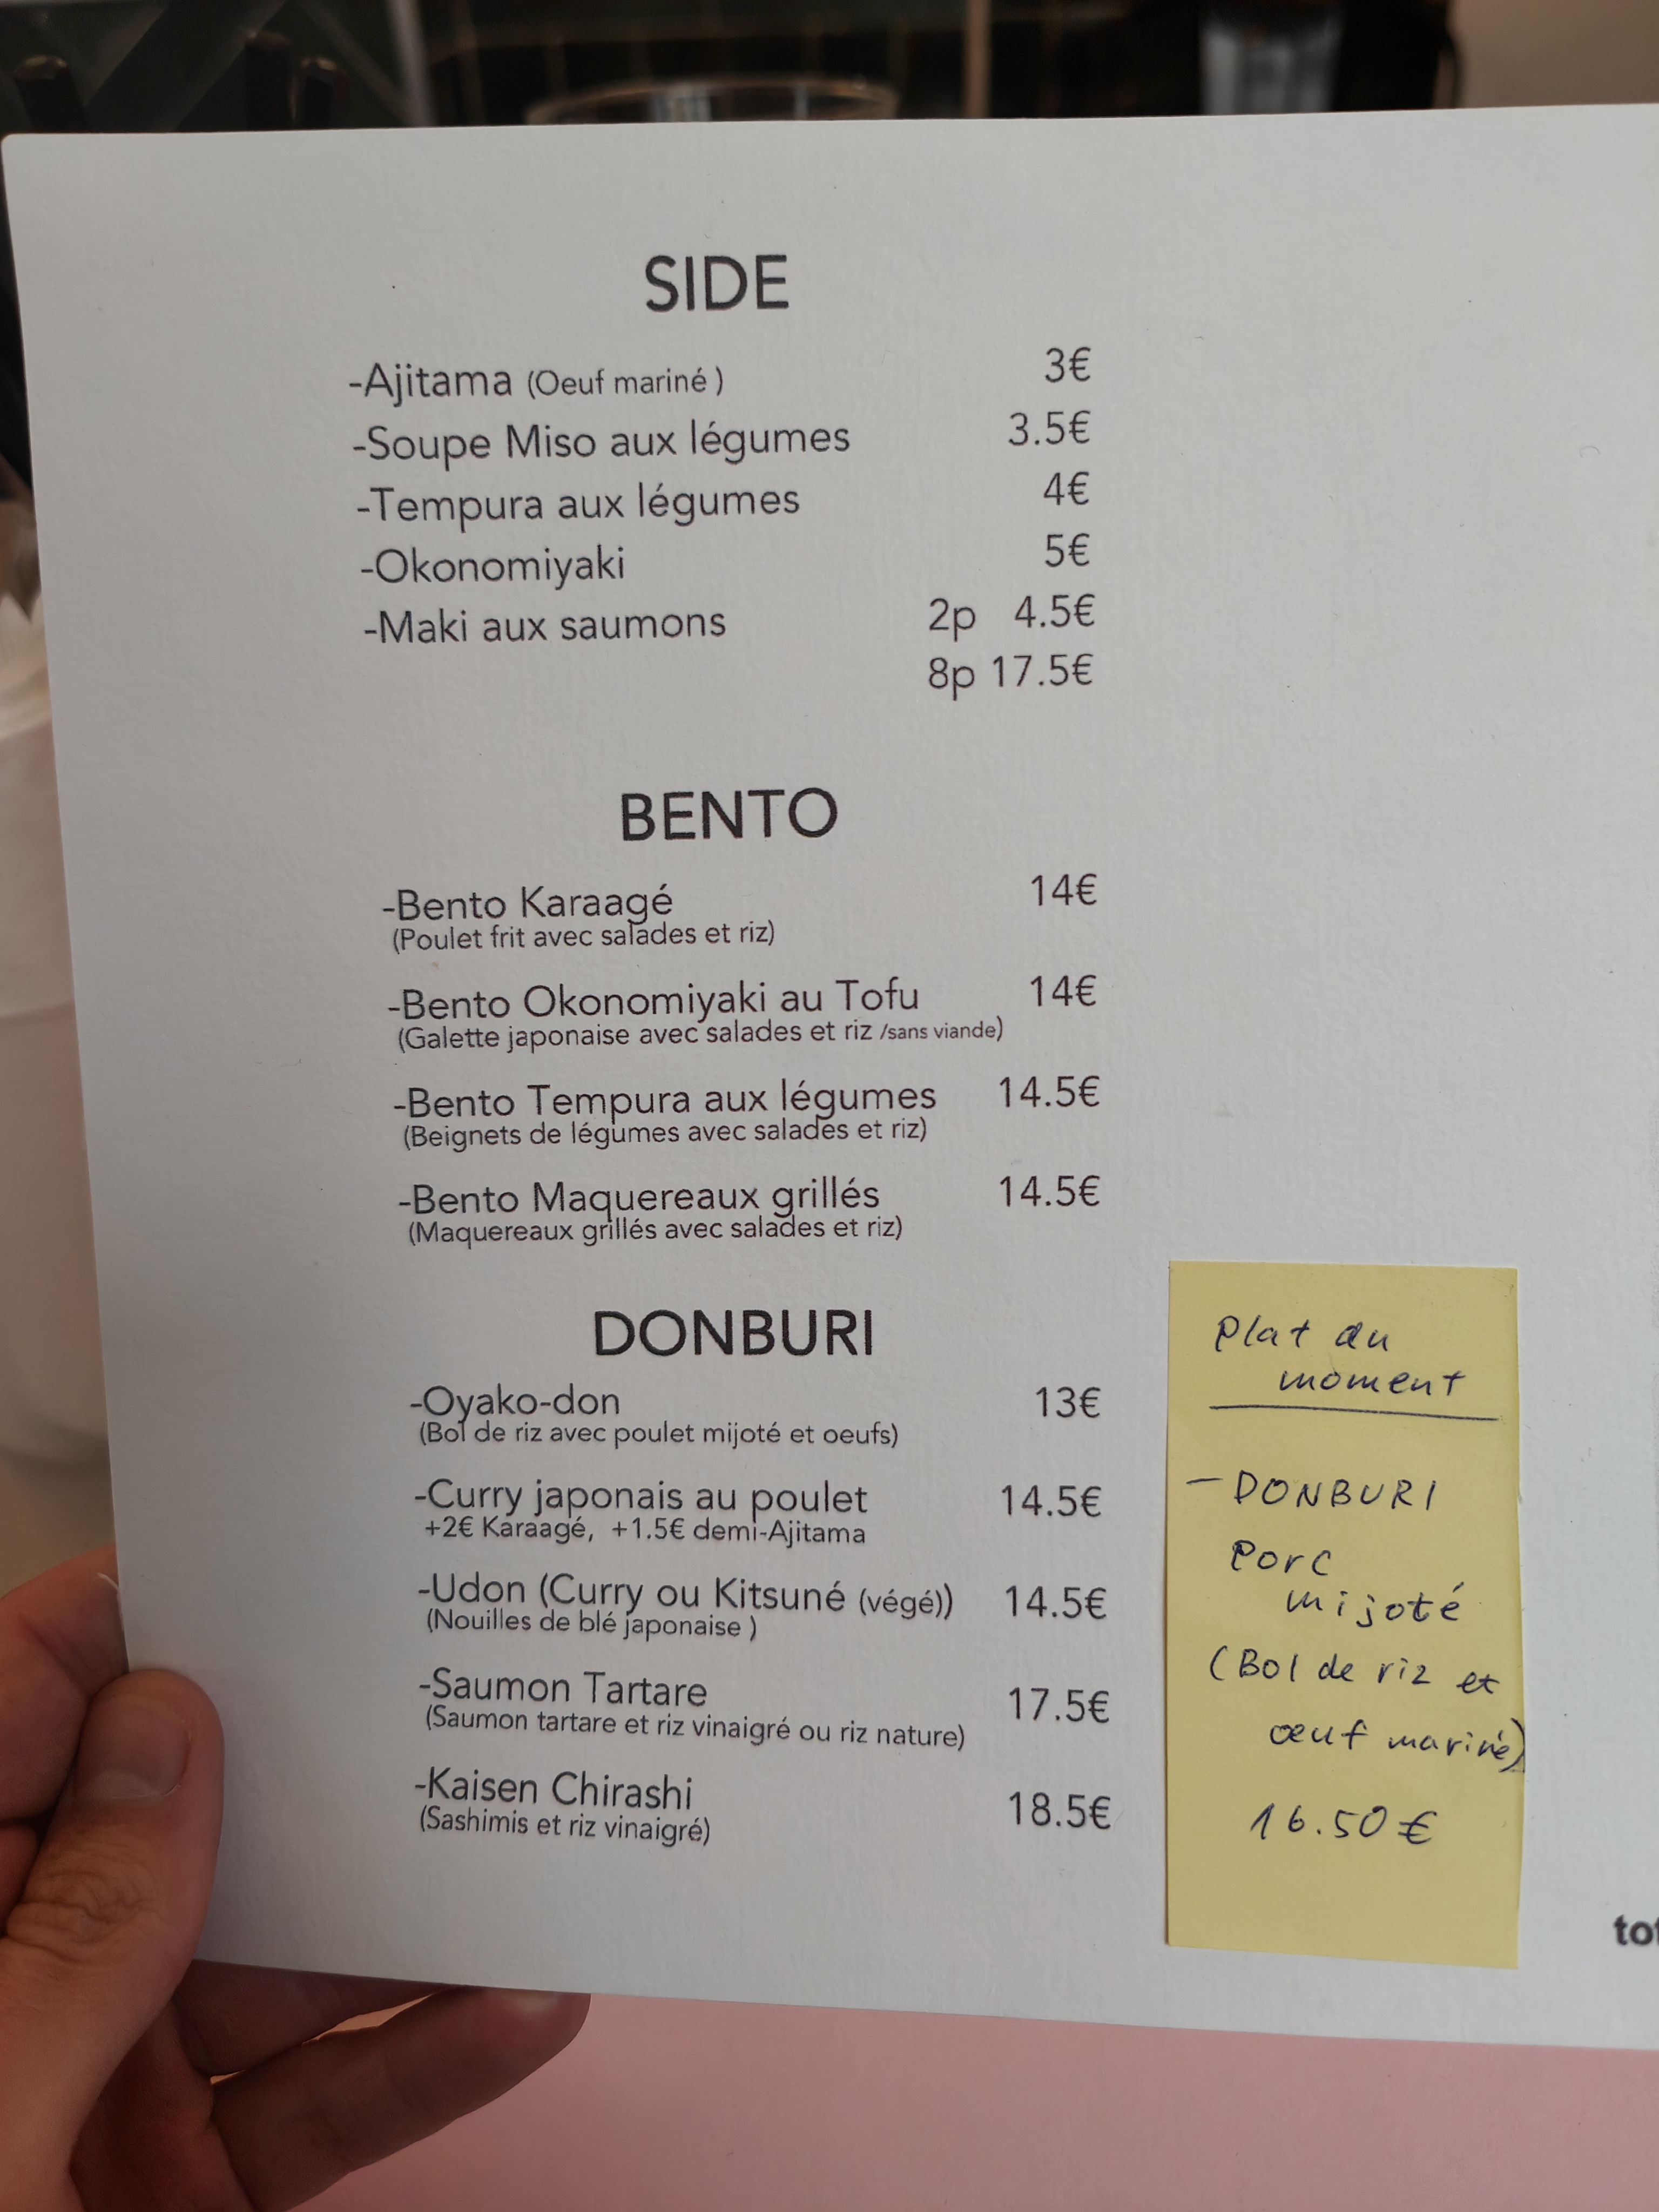 SIDE
-Ajitama (Oeuf mariné ) 3€
-Soupe Miso aux légumes 3.5€
-Tempura aux légumes 4€
-Okonomiyaki 5€
-Maki aux saumons 2p 4.5€
8p 17.5€
BENTO
-Bento Karaagé 14€
(Poulet frit avec salades et riz)
-Bento Okonomiyaki au Tofu 14€
(Galette japonaise avec salades et riz /sans viande)
-Bento Tempura aux légumes 14.5€
(Beignets de légumes avec salades et riz)
-Bento Maquereaux grillés 14.5€
(Maquereaux grillés avec salades et riz)
DONBURI
-Oyako-don 13€
(Bol de riz avec poulet mijoté et oeufs)
-Curry japonais au poulet 14.5€
+2€ Karaagé, +1.5€ demi-Ajitama
-Udon (Curry ou Kitsuné (végé)) 14.5€
(Nouilles de blé japonaise )
-Saumon Tartare 17.5€
(Saumon tartare et riz vinaigré ou riz nature)
-Kaisen Chirashi 18.5€
(Sashimis et riz vinaigré)
Plat du
moment
- DONBURI
Porc
mijoté
(Bol de riz et
œuf mariné)
16.50 €